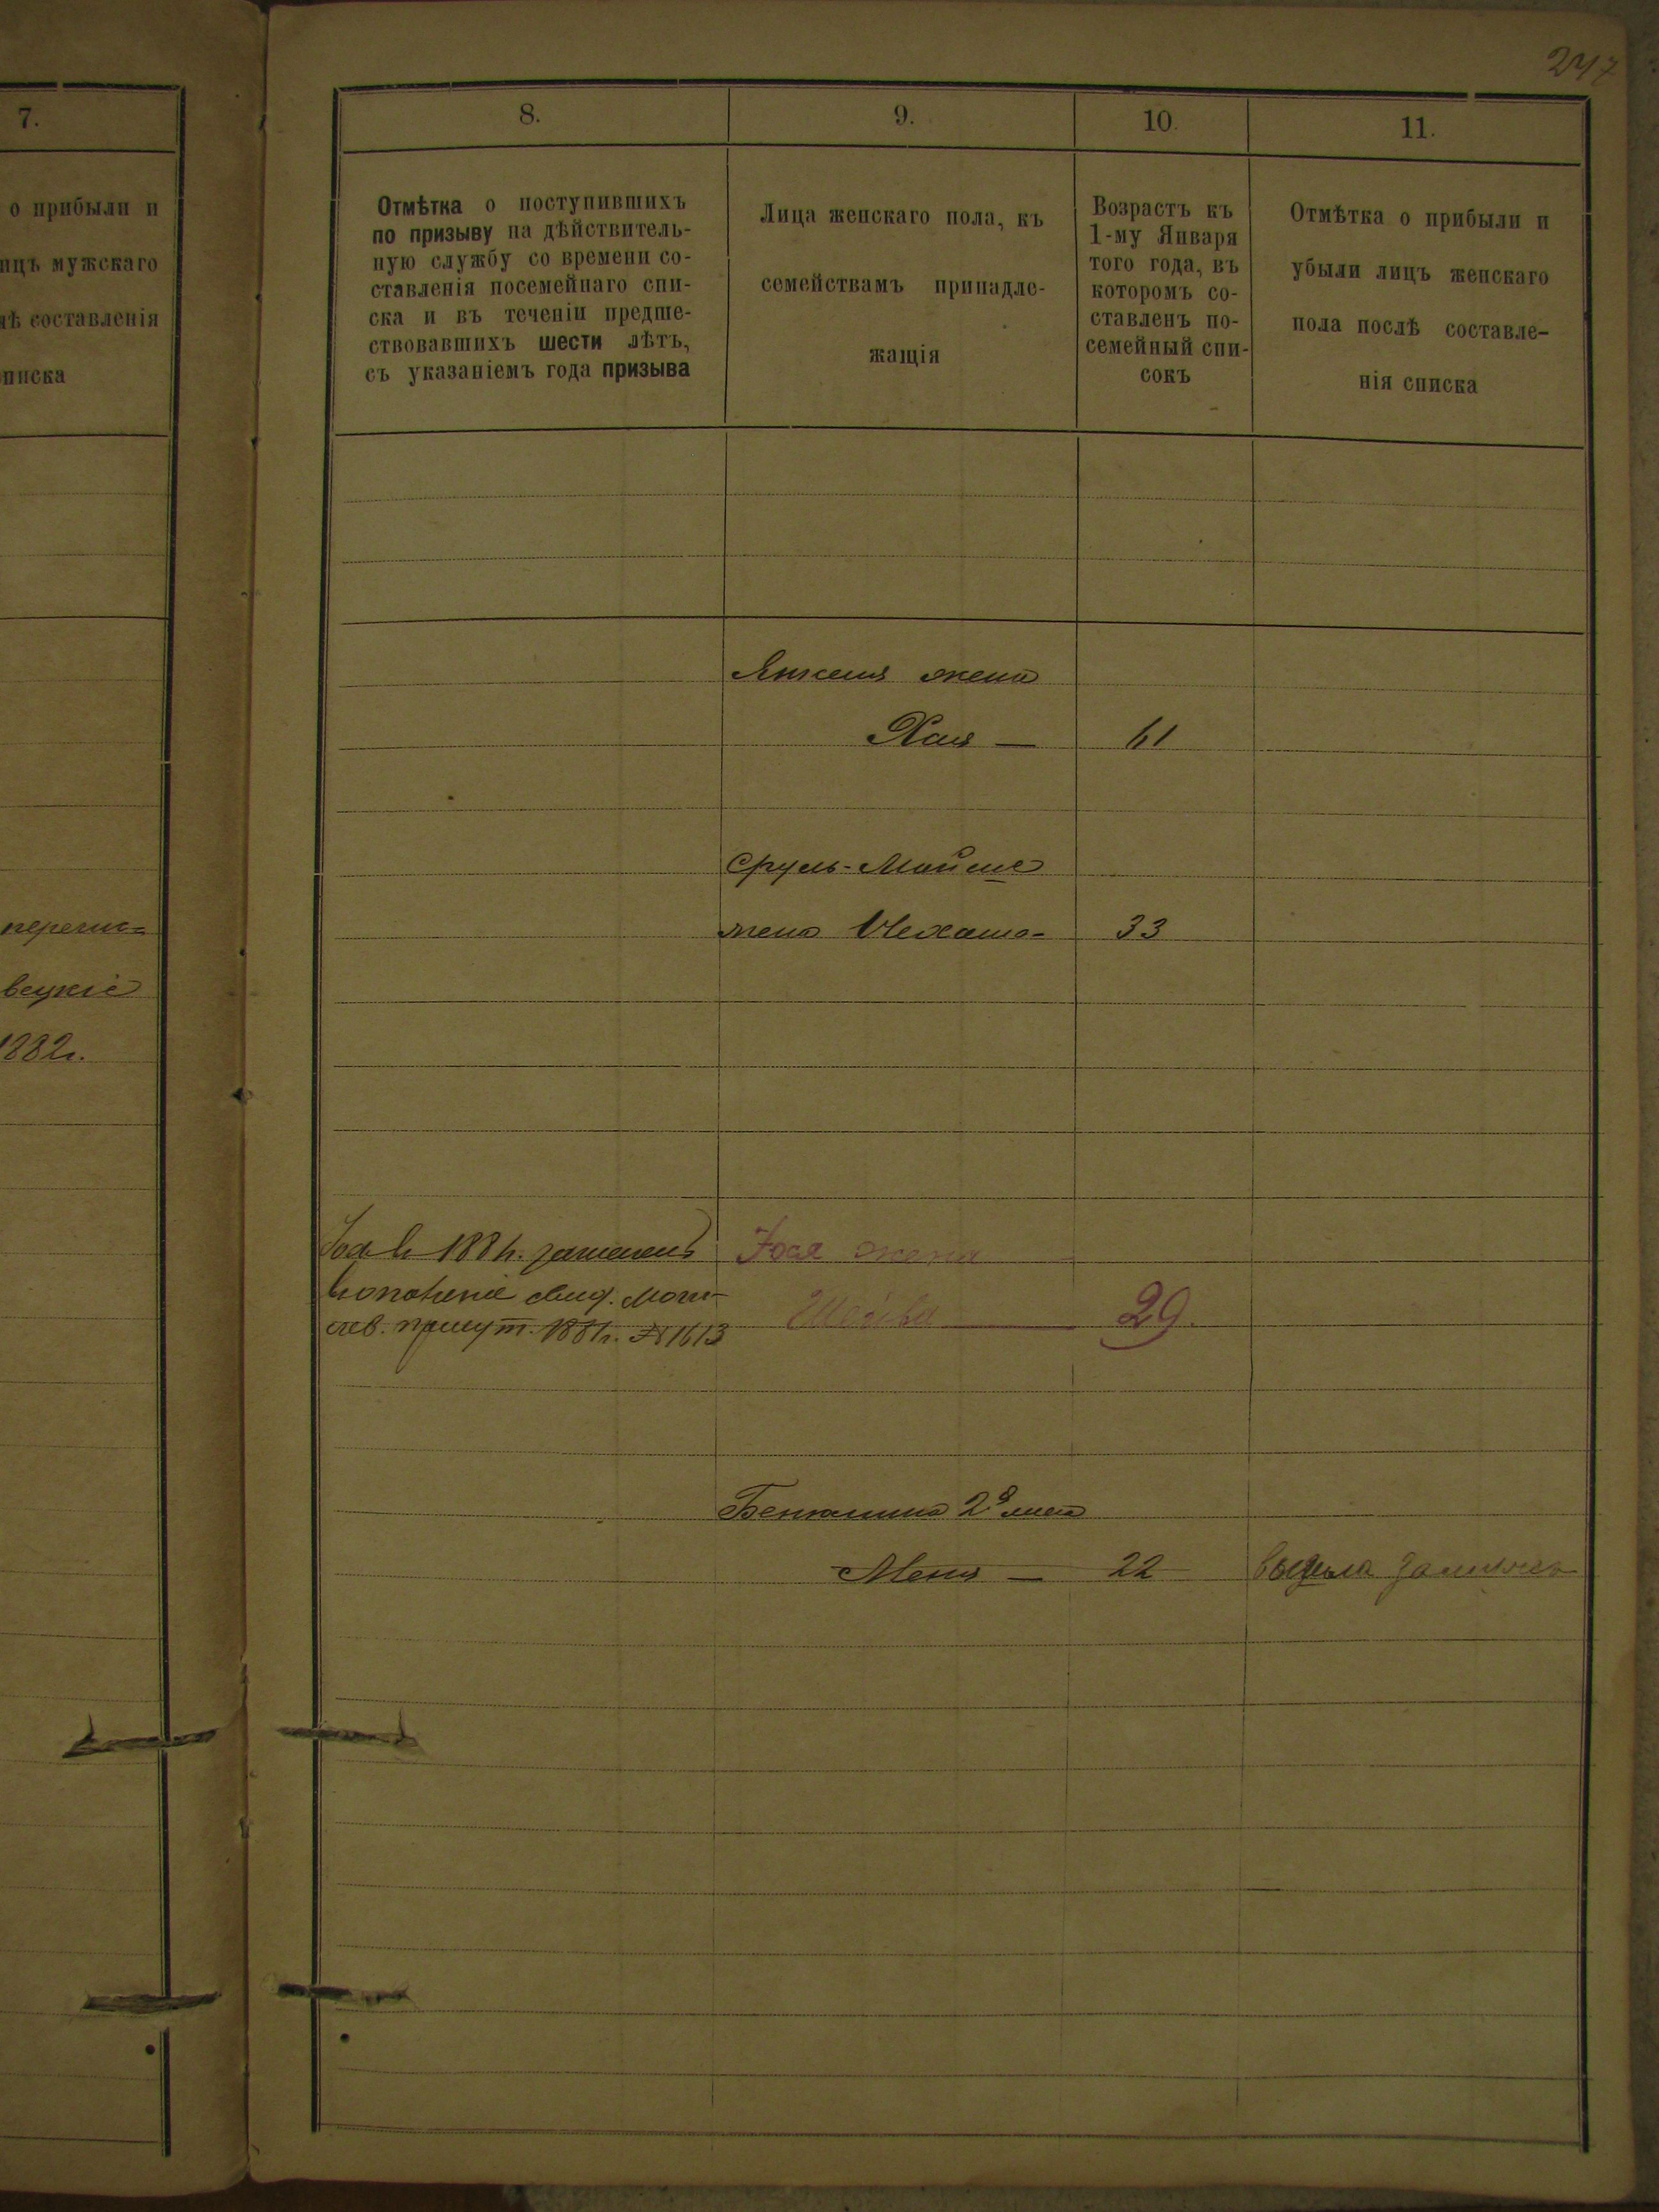 247
7.
о прибыли и
ицъ мужскаго
лѣ составленія
списка
перечис-
вецкіе
1882г.
8.
Отмѣтка о поступившихъ
по призыву на дѣйствитель-
ную службу со времени со-
ставленія посемейнаго спи-
ска и въ теченіи предше-
ствовавшихъ шести лѣтъ,
съ указаніемъ года призыва
9.
Лица женскаго пола, къ
семействамъ принадле-
жащія
10.
Возрастъ къ
1-му Января
того года, въ
которомъ со-
ставленъ по-
семейный спи-
сокъ
11.
Отмѣтка о прибыли и
убыли лицъ женскаго
пола послѣ составле-
нія списка
жена
Хая — 61
Сруль-Мойше
жена 33
1881г. зачисленъ
въ ополченіе свид. Моги-
лев. присут. 1881г. №1613
Іося жена
Шейва 29.
Бенюмина 2й жена
Меня — 22 вышла замужъ